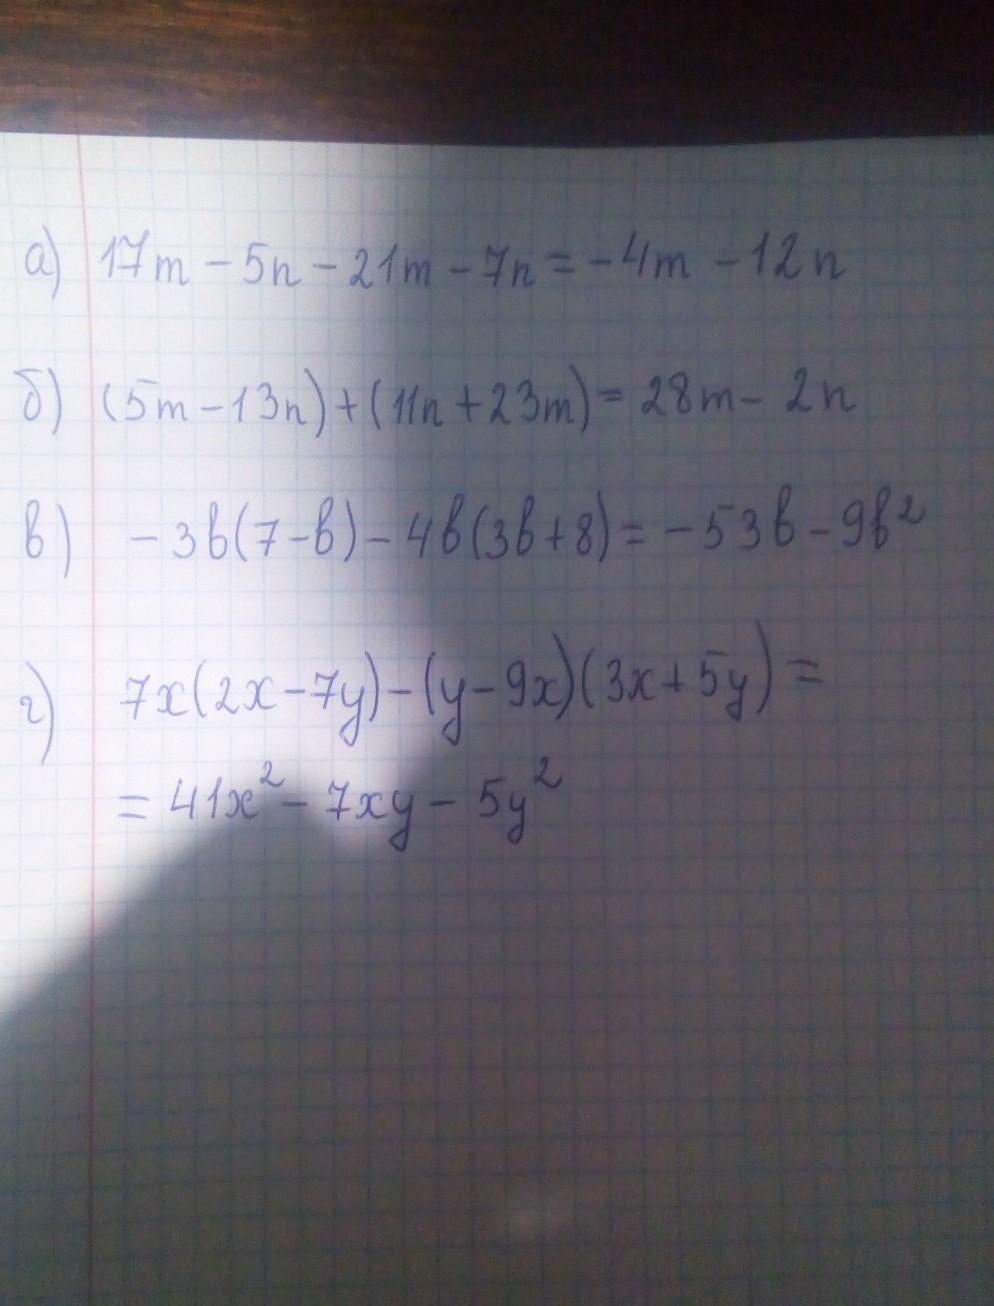 а) 17m - 5n - 21m - 7n = -4m - 12n
б) (5m - 13n) + (11n + 23m) = 28m - 2n
в) - 3b(7 - b) - 4b(3b + 8) = - 53b - 9b²
г) 7x(2x - 7y) - (y - 9x)(3x + 5y) =
= 41x² - 7xy - 5y²